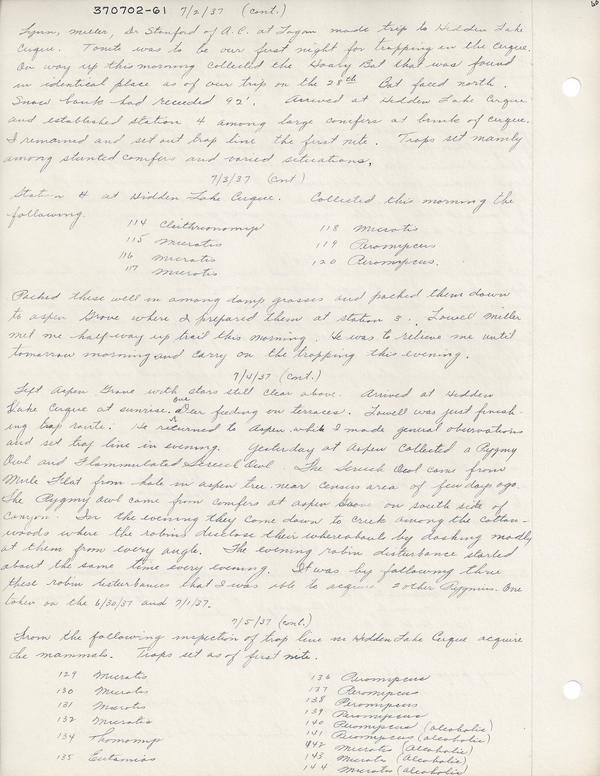 60
370702-61 7/2/37 (cont.)
Lynn, Miller, Dr Stanford of A.C. at Logan made trip to Hidden Lake
Cirque. Tonite was to be our first night for trapping in the Cirque.
On way up this morning collected the Hoary Bat that was found
in identical place as of our trip on the 28th. Bat faced north.
Snow bank had receeded 92'. Arrived at Hidden Lake Cirque
and established station 4 among large conifers at brink of cirque.
I remained and set out trap line the first nite. Traps set mainly
among stunted conifers and varied situations.
7/3/37 (cont)
Station 4 at Hidden Lake Cirque. Collected this morning the
following.
114 Clethrionomys
115 Microtis
116 Microtis
117 Microtis
118 Microtis
119 Peromyscus
120 Peromyscus.
Packed these well in among damp grasses and packed them down
to aspen Grove where I prepared them at station 3. Lowell Miller
met me half-way up trail this morning. He was to relieve me until
tomorrow morning and carry on the trapping this evening.
7/4/37 (cont.)
Left Aspen Grove with stars still clear above. Arrived at Hidden
Lake Cirque at sunrise. Deer feeding on terraces. Lowell was just finish-
ing trap route. He returned to Aspen while I made general observations
and set trap line in evening. Yesterday at Aspen collected a Pygmy
Owl and Flammulated Screech Owl. The Screech Owl came from
Mule Flat from hole in aspen tree near census area of few days ago.
The Pygmy owl came from conifers at aspen Grove on south side of
Canyon. In the evening they come down to creek among the cotton-
woods where the robins disclose their whereabouts by dashing madly
at them from every angle. The evening robin disturbance started
about the same time every evening. It was by following thru
these robin disturbances that I was able to acquire 2 other Pygmies. One
taken on the 6/30/37 and 7/1/37.
7/5/37 (cont.)
From the following inspection of trap line in Hidden Lake Cirque acquire
the mammals. Traps set as of first nite.
129 Microtis
130 Microtis
131 Microtis
132 Microtis
134 Thomomys
135 Eutamias
136 Peromyscus
137 Peromyscus
138 Peromyscus
139 Peromyscus
140 Peromyscus (alcoholic)
141 Peromyscus (alcoholic)
142 Microtis (alcoholic)
143 Microtis (alcoholic)
144 Microtis (alcoholic)